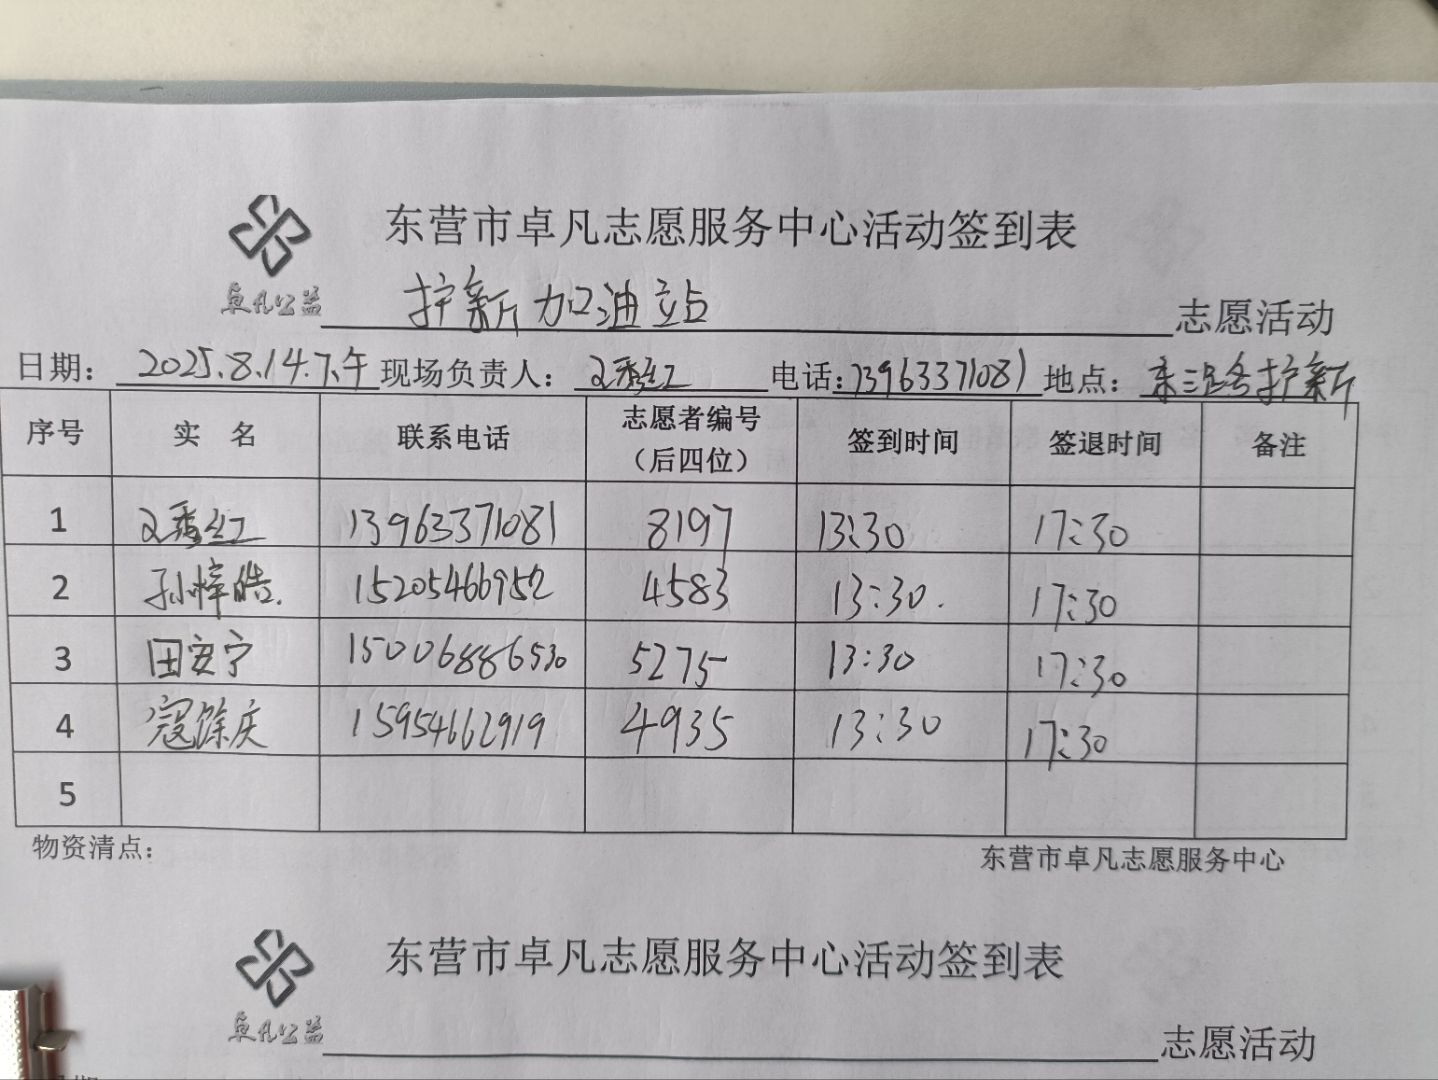 东营市卓凡志愿服务中心活动签到表
卓凡公益 护新加油站 志愿活动
日期: 2025.8.14.下午 现场负责人: 秀红 电话: 13963371081 地点: 东三路护新
序号 实 名 联系电话 志愿者编号(后四位) 签到时间 签退时间 备注
1 秀红 13963371081 8197 13:30 17:30
2 孙梓皓. 15205466952 4583 13:30. 17:30
3 田安宁 15006886530 5275 13:30 17:30
4 寇馀庆 15954662919 4935 13:30 17:30
5
物资清点: 东营市卓凡志愿服务中心
东营市卓凡志愿服务中心活动签到表
卓凡公益 志愿活动